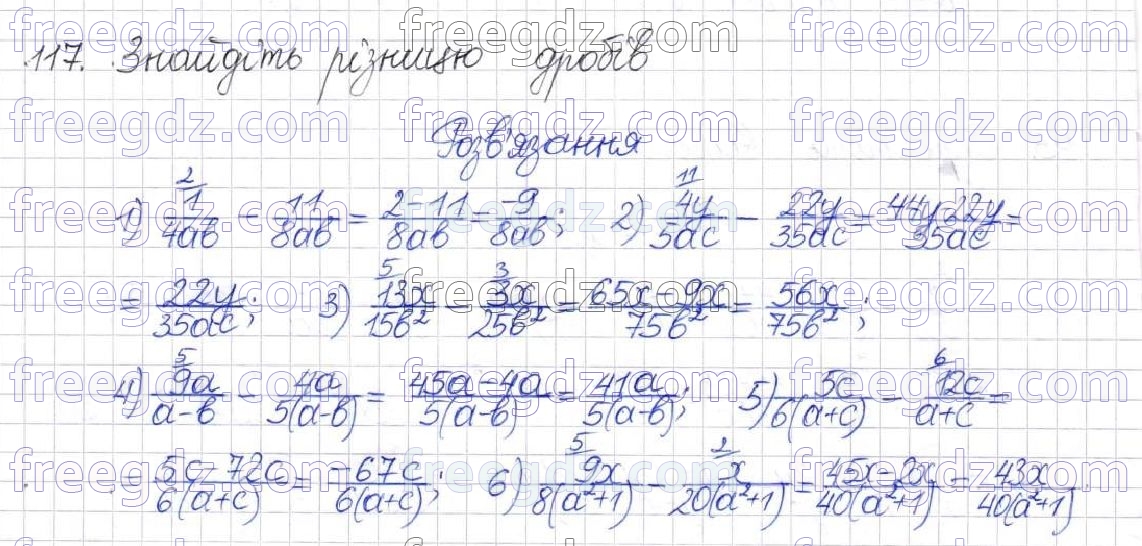 117. Знайдіть різницю дробів
Розв'язання
1) 1/4ab (2) - 11/8ab = 2-11/8ab = -9/8ab; 2) 4y/5ac (11) - 22y/35ac = 44y-22y/35ac =
= 22y/35ac; 3) 13x/15b² (5) - 3x/25b² (3) = 65x-9x/75b² = 56x/75b²;
4) 9a/a-b (5) - 4a/5(a-b) = 45a-4a/5(a-b) = 41a/5(a-b); 5) 5c/6(a+c) - 12c/a+c (6) =
= 5c-72c/6(a+c) = -67c/6(a+c); 6) 9x/8(a²+1) (5) - x/20(a²+1) (2) = 45x-2x/40(a²+1) = 43x/40(a²+1)
freegdz.com freegdz.com freegdz.com
freegdz.com freegdz.com freegdz.com
freegdz.com freegdz.com freegdz.com
freegdz.com freegdz.com freegdz.com
freegdz.com freegdz.com freegdz.com
freegdz.com freegdz.com freegdz.com
freegdz.com freegdz.com freegdz.com